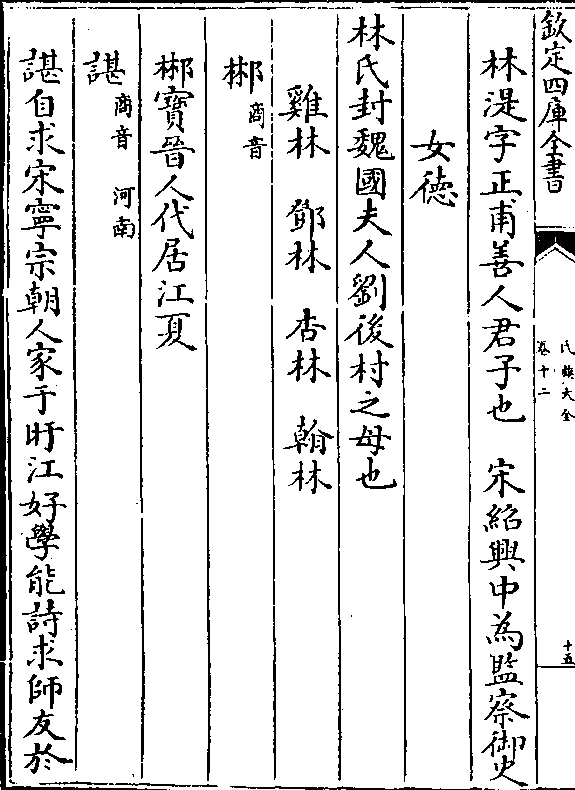 欽定四庫全書
氏族大全
卷十二
十五
林湜字正甫善人君子也　宋紹興中為監察御史
女德
林氏封魏國夫人劉後村之母也
雞林　鄧林　杏林　翰林
郴 商音
郴寶晉人代居江夏
諶 商音　河南
諶自求宋寧宗朝人家于盱江好學能詩求師友於